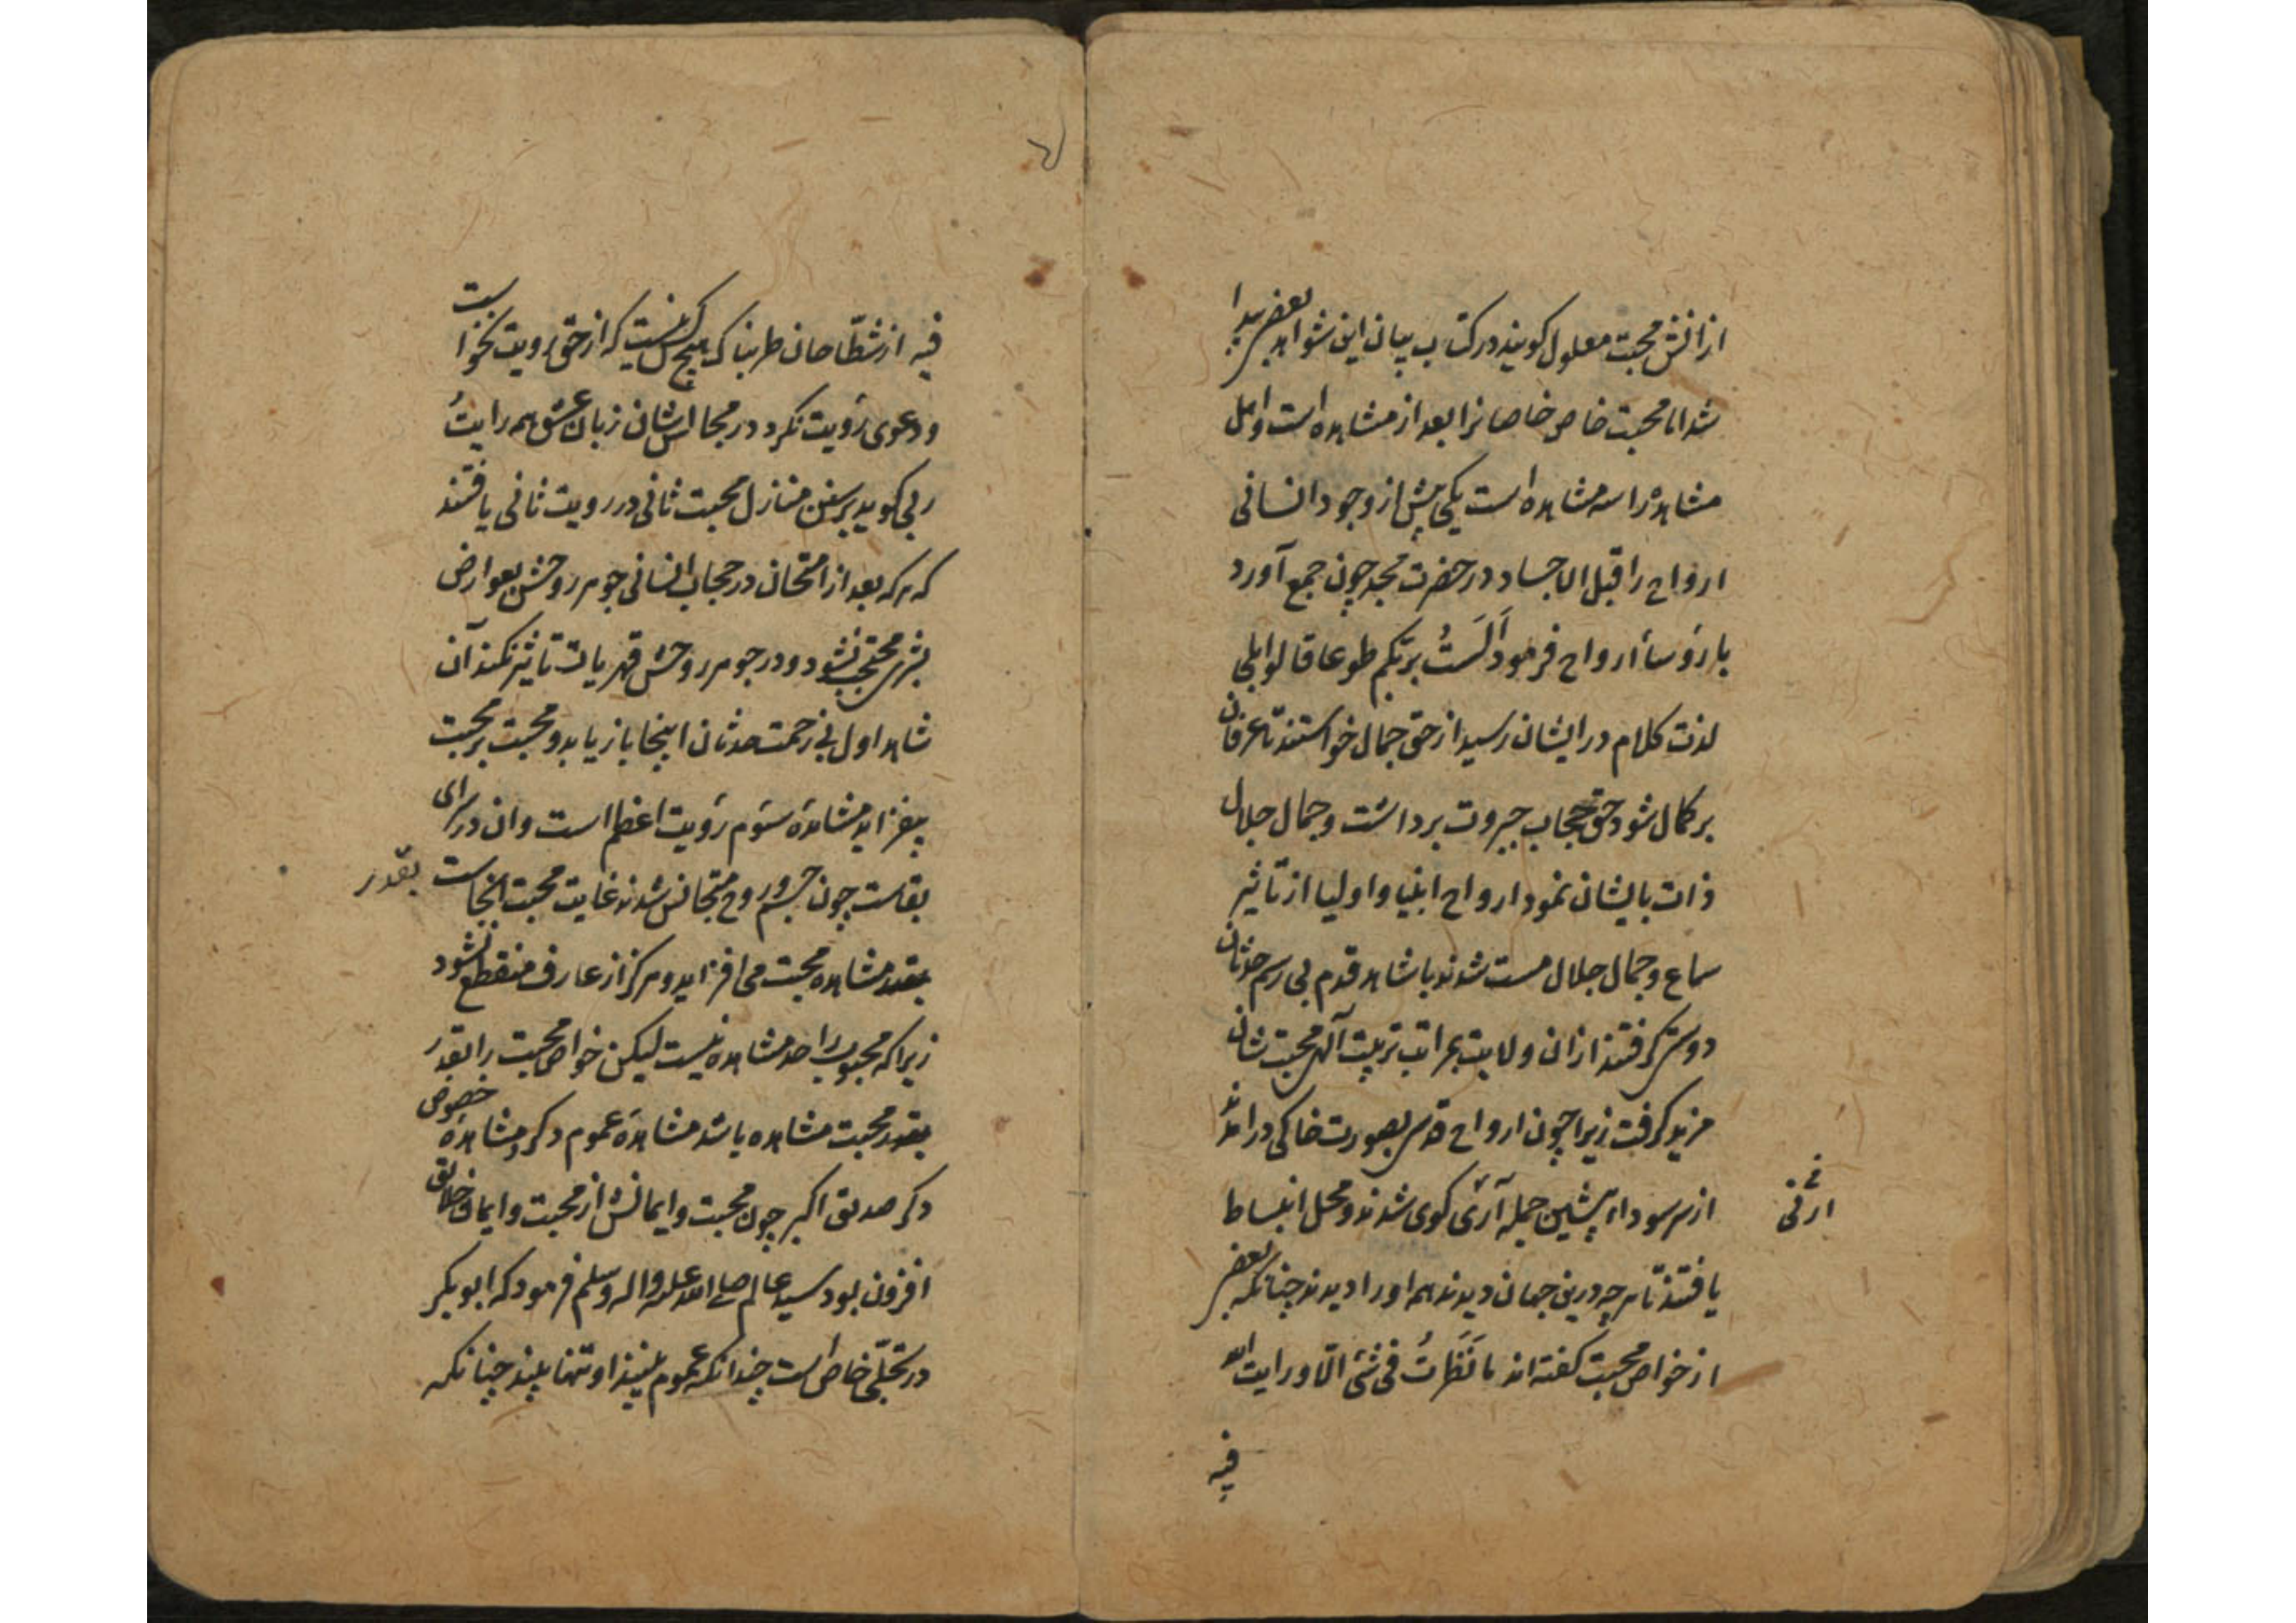 ازانش محبت معلول کویند در کتاب بیان این شواهد بعضی پیدا
شد اما محبت خاص خاصانرا بعد از مشاهده است و اهل
مشاهده را سه مشاهده است یکی پیش از وجود انسانی
ارواح را قبل الاجساد در حضرت مجید چون جمع آورد
با رؤساء ارواح فرمود اَلَستُ بربکم طوعا قالوا بلی
لذت کلام در ایشان رسید از حق جمال خواستند تا عرفان
بر کمال شود حق حجاب جبروت برداشت و جمال جلال
ذات بایشان نمود ارواح انبیا و اولیا از تاثیر
سماع و جمال جلال مست شدند با شاهد قدم بی رسم حدثان
دوستی کرفتند ازان ولایت بمراتب تربیت آلهی محبت شان
مزید کرفت زیرا چون ارواح قدسی بصورت خاکی درآمدند
از سر سوداء پیشین جمله آرنی کوی شدند و محل انبساط
ارنی
یافتند تا هر چه درین جهان دیدند همه اورا دیدند چنانکه بعضی
از خواص محبت کفته اند ما نَظَرتُ فی شئ الّا و رایت الله
فیه
فیه از شطّاحان طربناک هیچ کس نیست که از حق رویت نخواست
و دعوی رؤیت نکرد در مجالس شان زبان عشق همه رایتُ
ربی کوید بر سنن منازل محبت ثانی در رویت ثانی یافتند
که هر که بعد از امتحان در حجاب انسانی جوهر روحش بعوارض
بشری محتجب نشود و در جوهر روحش قهریات تاثیر نکند آن
شاهد اول بی زحمت حدثان اینجا باز یابد و محبت بر محبت
بیفزاید مشاهدهٔ سوّم رؤیت اعظم است و ان در سرای
بقاست چون جسم و روح متجانس شدند غایت محبت آنجاست
بقدر
بقدر مشاهده محبت می افزاید و هرکز از عارف منقطع نشود
زیرا که محبوب را حد مشاهده نیست لیکن خواص محبت را بقدر
بقدر محبت مشاهده باشد مشاهدهٔ عموم دکر و مشاهدهٔ خصوص
دکر صدیق اکبر چون محبت و ایمانش از محبت و ایمان خلایق
افزون بود سید عالم صلی الله علیه واله وسلم فرمود که ابو بکر
در تجلّی خاص است چندانکه عموم بینند او تنها بیند چنانکه